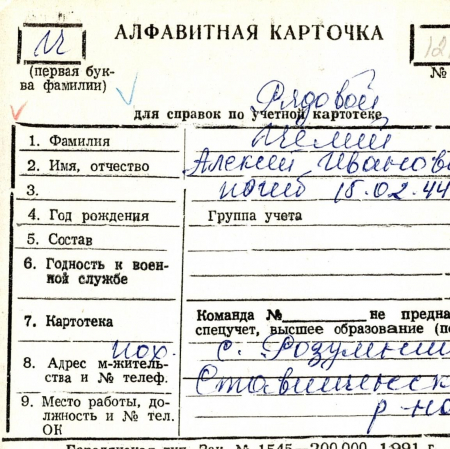 АЛФАВИТНАЯ КАРТОЧКА
(первая бук-
ва фамилии)
№
для справок по учетной картотеке
Рядовой
1. Фамилия
2. Имя, отчество Алексей Иванов
3. погиб 15.02.44
4. Год рождения Группа учета
5. Состав
6. Годность к воен-
ной службе
7. Картотека
Команда № не предна
спецучет, высшее образование (по
пох.
8. Адрес м-житель-
ства и № телеф.
с.
9. Место работы, до-
лжность и № тел.
ОК
р-на
Зак. № 1545—200.000 1991 г.